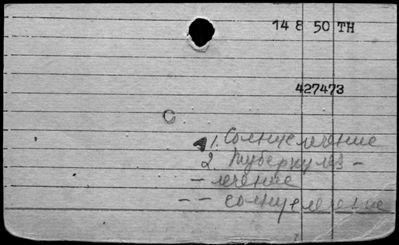 14 8 50 TH
427473
С
1. Солнцелечение
2 Туберкулез -
- лечение
- - солнцелечение